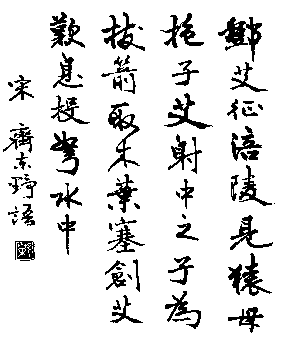 鄧艾征涪陵見猿母
抱子艾射中之子為
拔箭取木葉塞創艾
歎息投弩水中
宋 齊東野語